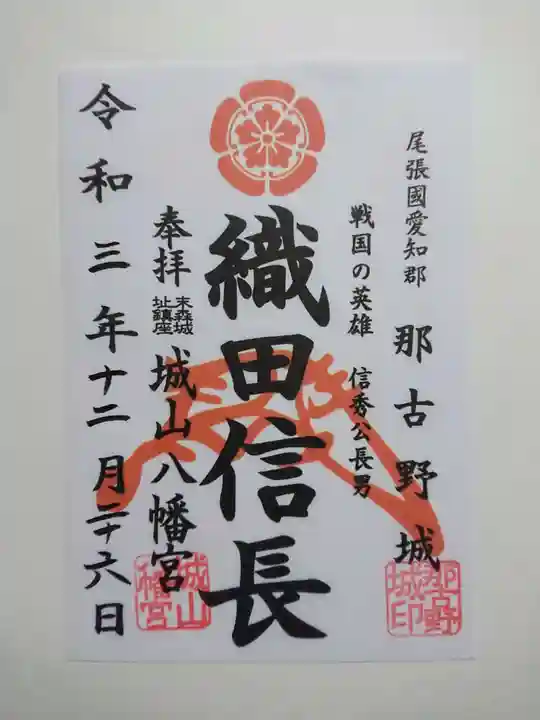 尾張國愛知郡 那古野城
戦国の英雄 信秀公長男
織田信長
奉拝 末森城址鎮座 城山八幡宮
令和三年十二月二十六日
那古野城印
城山八幡宮